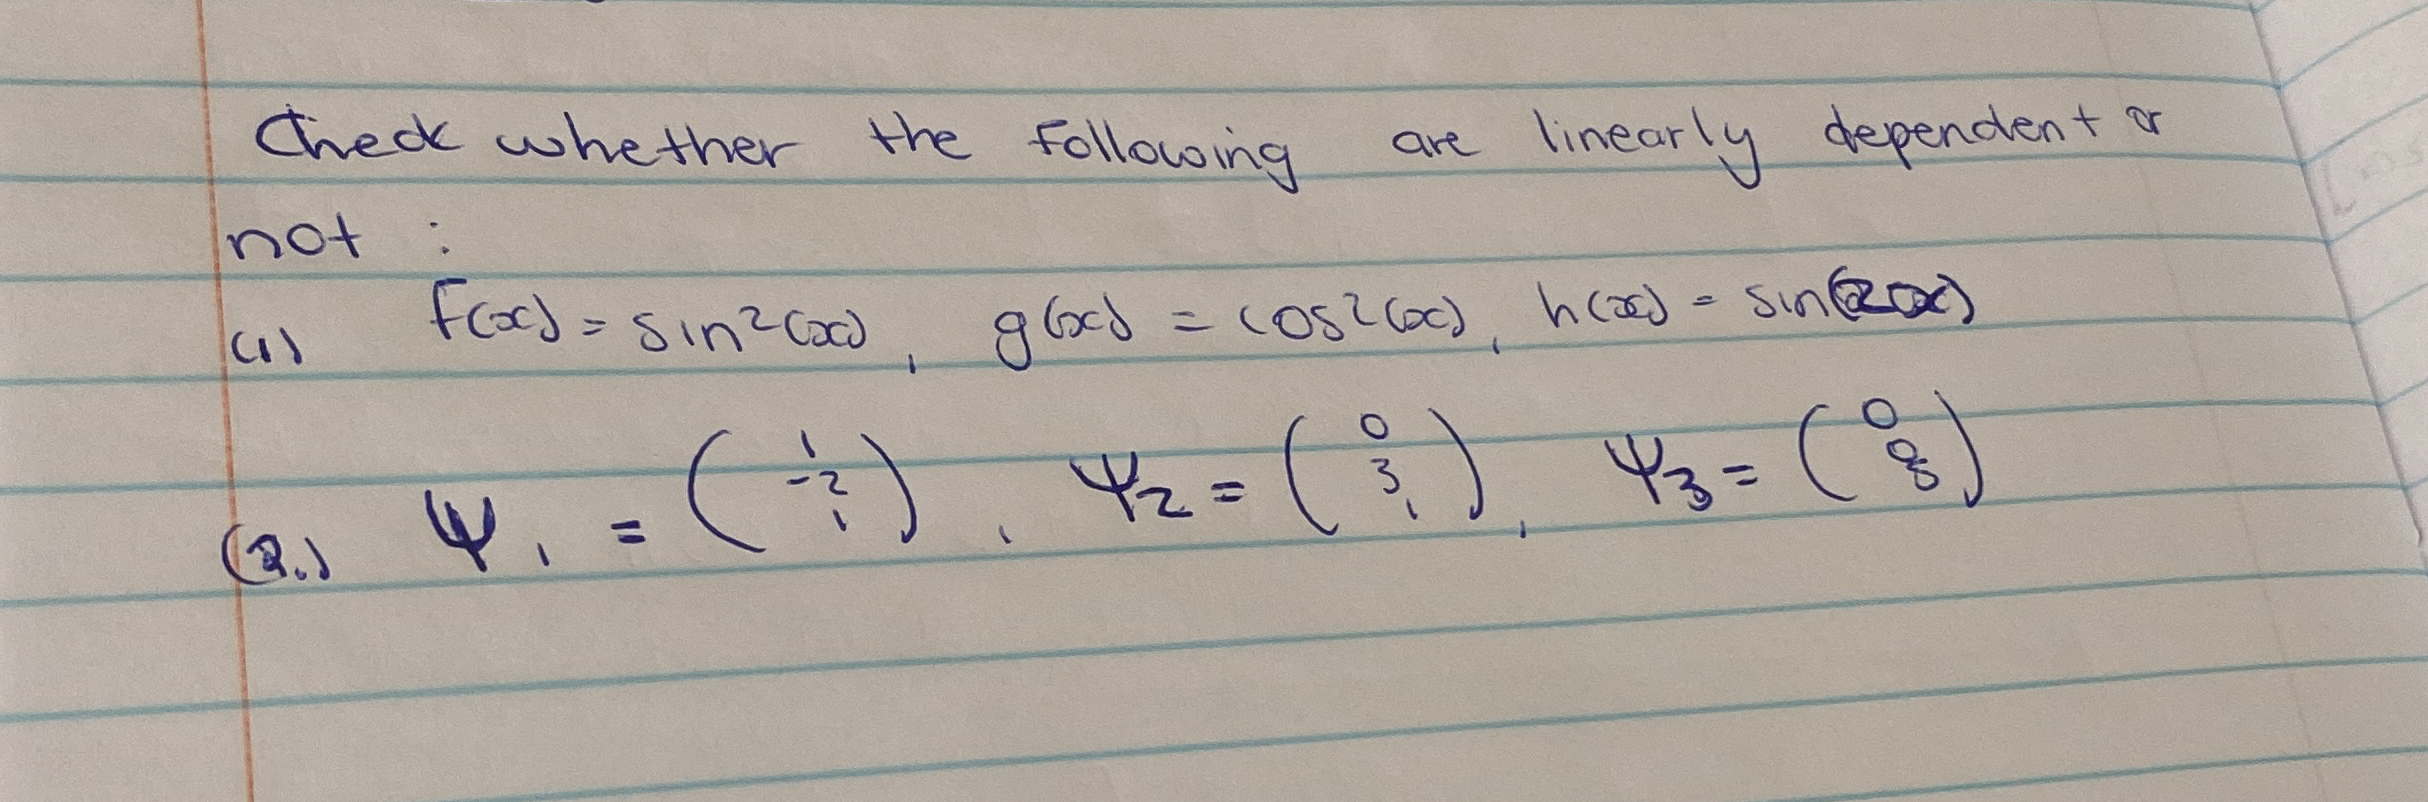 Check whether the following are linearly dependent or
not :
(1) f(x) = sin²(x), g(x) = cos²(x), h(x) = sin(2x)
(2.) Ψ₁ = (1 -2 1), Ψ₂ = (0 3 1), Ψ₃ = (0